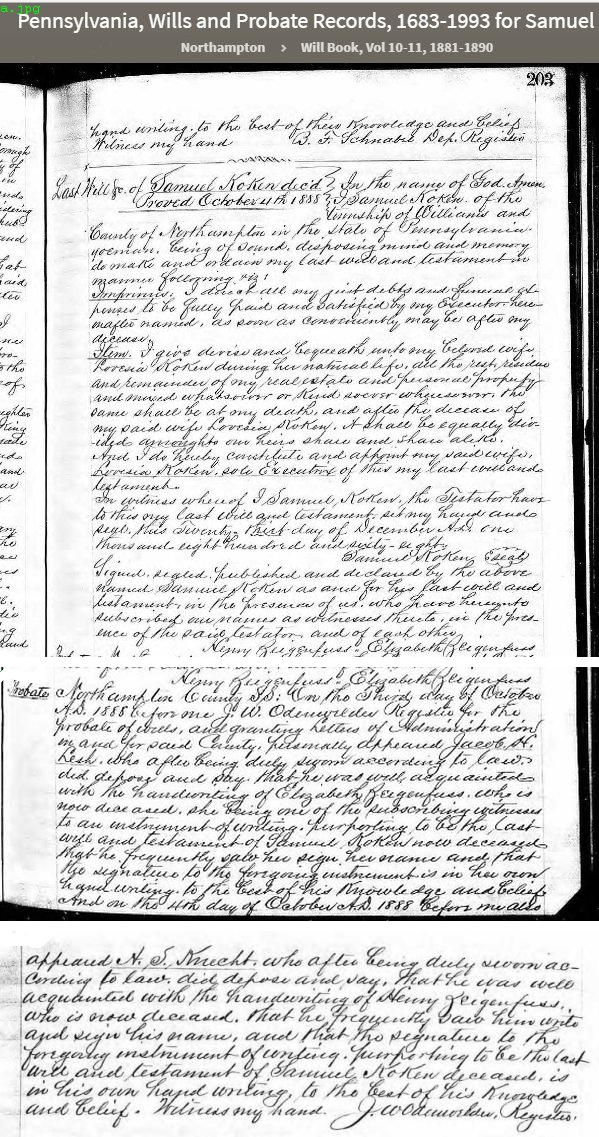 a.jpg
Pennsylvania, Wills and Probate Records, 1683-1993 for Samuel
Northampton > Will Book, Vol 10-11, 1881-1890
203
hand writing. to the best of their Knowledge and belief
Witness my hand B. F. Schnabel Dep. Register
Last Will &c. of Samuel Koken dec'd } In the name of God. Amen.
Proved October 4th 1888 } I Samuel Koken. of the
Township of Williams and
County of Northampton in the state of Pennsylvania.
yeoman. being of sound. disposing mind and memory
do make and ordain my last will and testament in
manner following viz:
Imprimis. I direct all my just debts and funeral ex-
penses to be fully paid and satisfied by my Executor here-
inafter named, as soon as conveniently may be after my
decease.
Item. I give devise and bequeath unto my beloved wife
Lovesia Koken during her natural life, all the rest, residue
and remainder of my real estate and personal property
and mixed whatsoever or Kind soever wheresoever. the
same shall be at my death, and after the decease of
my said wife Lovesia Koken. It shall be equally div-
ided amongts our heirs share and share alike.
And I do hereby constitute and appoint my said wife,
Lovesia Koken. sole Executrix of this my last will and
testament.
In witness whereof I, Samuel, Koken. the Testator have
to this my last will and testament, set my hand and
seal, this Twenty-third day of December A.D. one
thousand eight hundred and sixty-eight.
Samuel Koken Seal
Signed. sealed. published and declared by the above
named Samuel Koken as and for his last will and
testament, in the presence of us, who have hereunto
subscribed our names as witnesses thereto, in the pres-
ence of the said testator. and of each other.
Henry Zeigenfuss. Elizabeth Zeigenfuss
Henry Zeigenfuss. Elizabeth Zeigenfuss
Probate Northampton County SS: On the Third day of October
A.D. 1888 before me J. W. Odenwelder Register for the
probate of wills, and granting Letters of Administration
in and for said County, personally appeared Jacob H.
Lesh. who after being duly sworn according to law.
did depose and say. that he was well acquainted
with the handwriting of Elizabeth Zeigenfuss. who is
now deceased. she being one of the subscribing witnesses
to an instrument of writing. purporting to be the last
will and testament of Samuel Koken now deceased
that he frequently saw her sign her name and that
the signature to the foregoing instrument is in her own
hand writing. to the best of his Knowledge and belief
And on the 4th day of October A.D. 1888 before me also
appeared A. S. Knecht. who after being duly sworn ac-
cording to law. did depose and say. that he was well
acquainted with the handwriting of Henry Zeigenfuss.
who is now deceased. that he frequently saw him write
and sign his name, and that the signature to the
foregoing instrument of writing. purporting to be the last
will and testament of Samuel Koken deceased. is
in his own hand writing, to the best of his Knowledge
and belief. Witness my hand. J. W. Odenwelder, Register.